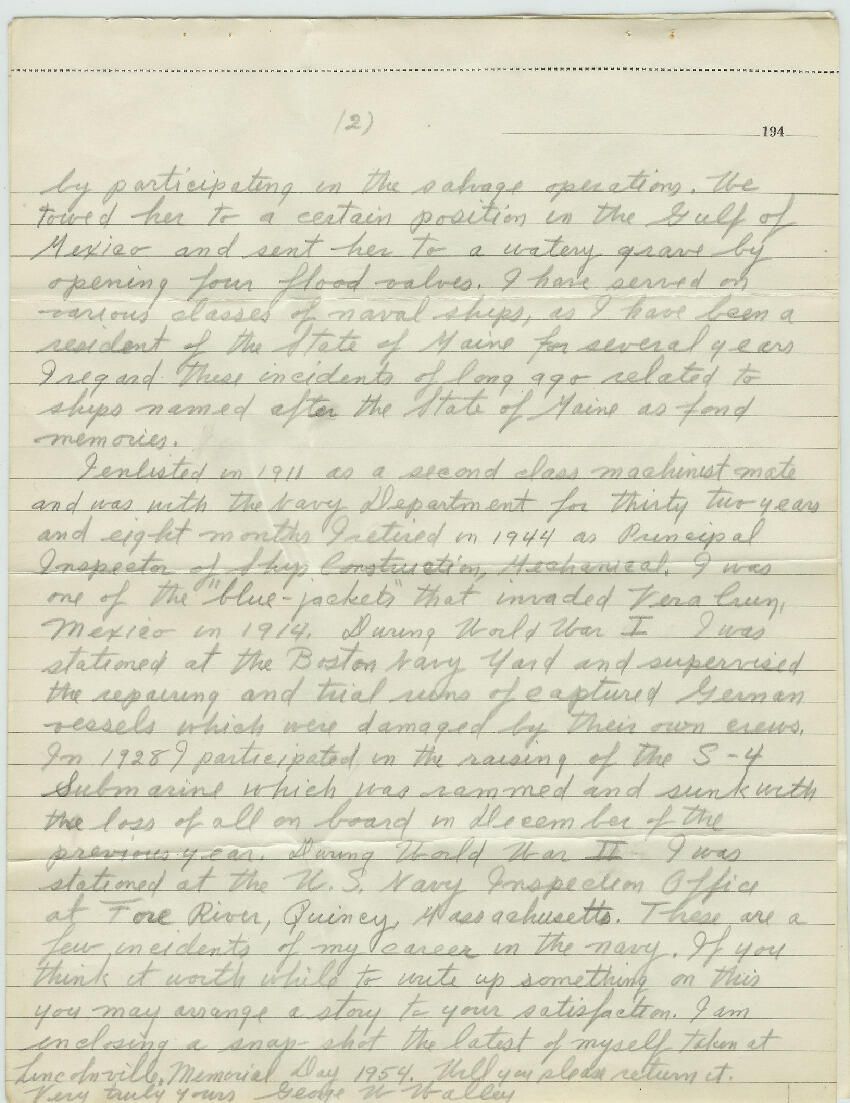 (2)
194
by participating in the salvage operations. We
towed her to a certain position in the Gulf of
Mexico and sent her to a watery grave by
opening four flood valves. I have served on
various classes of naval ships, as I have been a
resident of the State of Maine for several years
I regard these incidents of long ago related to
ships named after the State of Maine as fond
memories.
I enlisted in 1911 as a second class machinist mate
and was with the Navy Department for thirty two years
and eight months I retired in 1944 as Principal
Inspector of Ship Construction, Mechanical. I was
one of the "blue-jackets" that invaded Vera Cruz,
Mexico in 1914. During World War I I was
stationed at the Boston Navy Yard and supervised
the repairing and trial runs of captured German
vessels which were damaged by their own crews.
In 1928 I participated in the raising of the S-4
Submarine which was rammed and sunk with
the loss of all on board in December of the
previous year. During World War II I was
stationed at the U.S. Navy Inspection Office
at Fore River, Quincy, Massachusetts. These are a
few incidents of my career in the navy. If you
think it worth while to write up something on this
you may arrange a story to your satisfaction. I am
inclosing a snap-shot the latest of myself taken at
Lincolnville, Memorial Day 1954. Will you please return it.
Very truly yours George W Walley